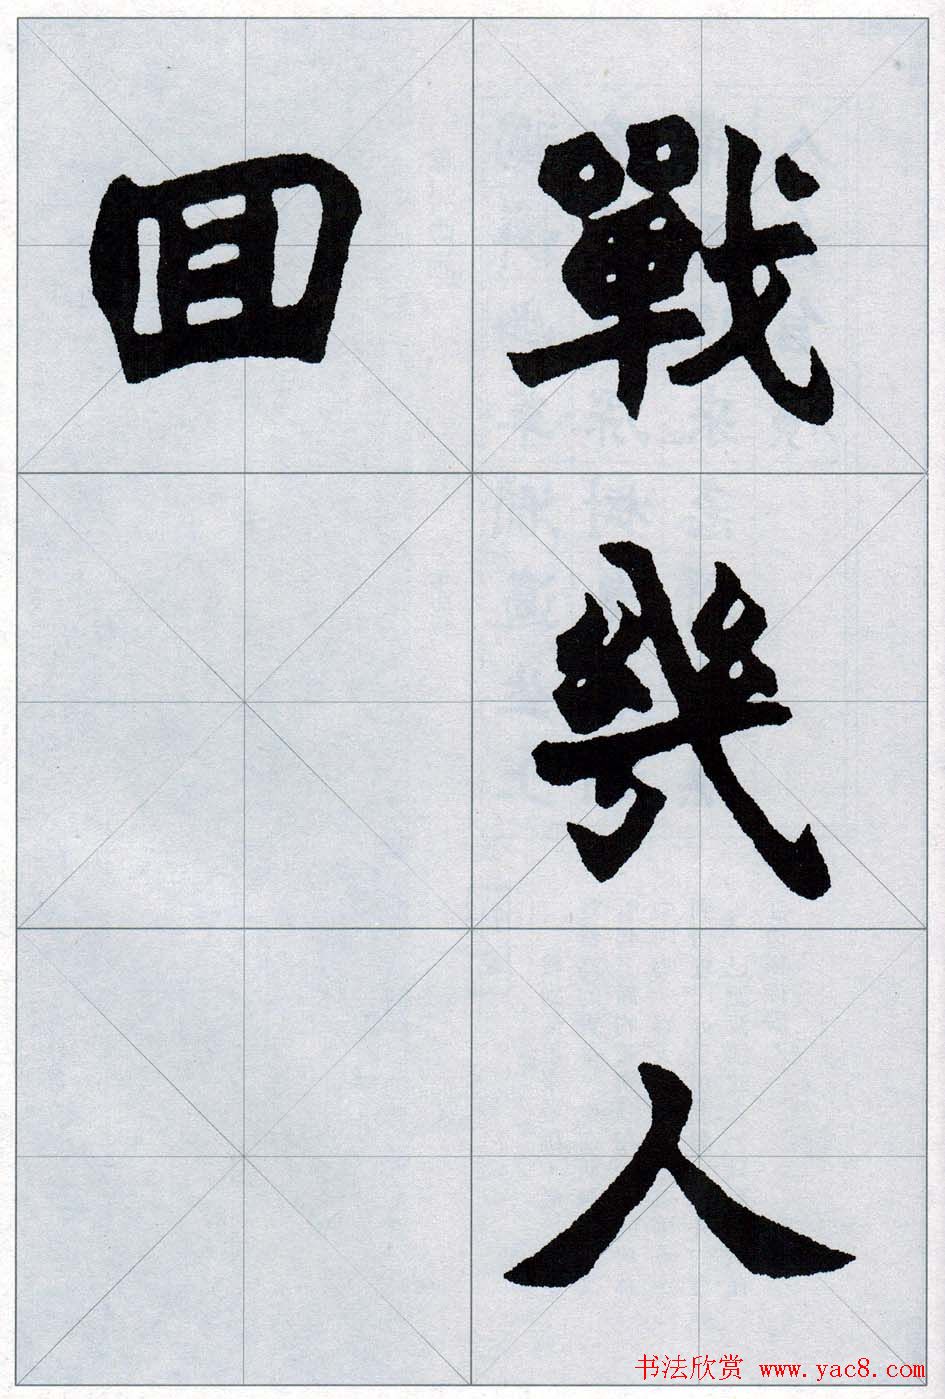 戰幾人
回
书法欣赏 www.yac8.com